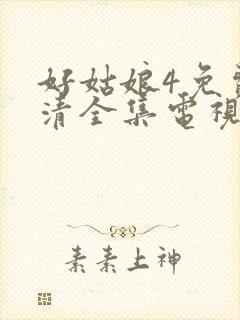 好姑娘4免
清全集電視
素素上神